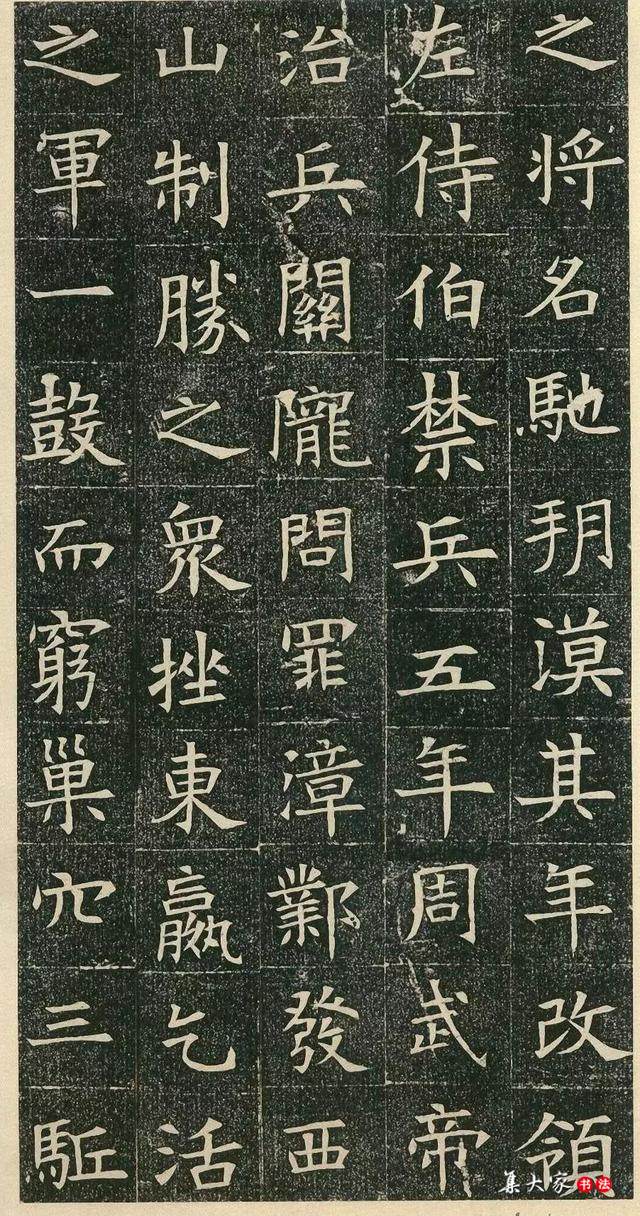 之將名馳朔漠其年改領
左侍伯禁兵五年周武帝
治兵關隴問罪漳鄴發西
山制勝之衆挫東嬴乞活
之軍一鼓而窮巢穴三駈
集大家书法